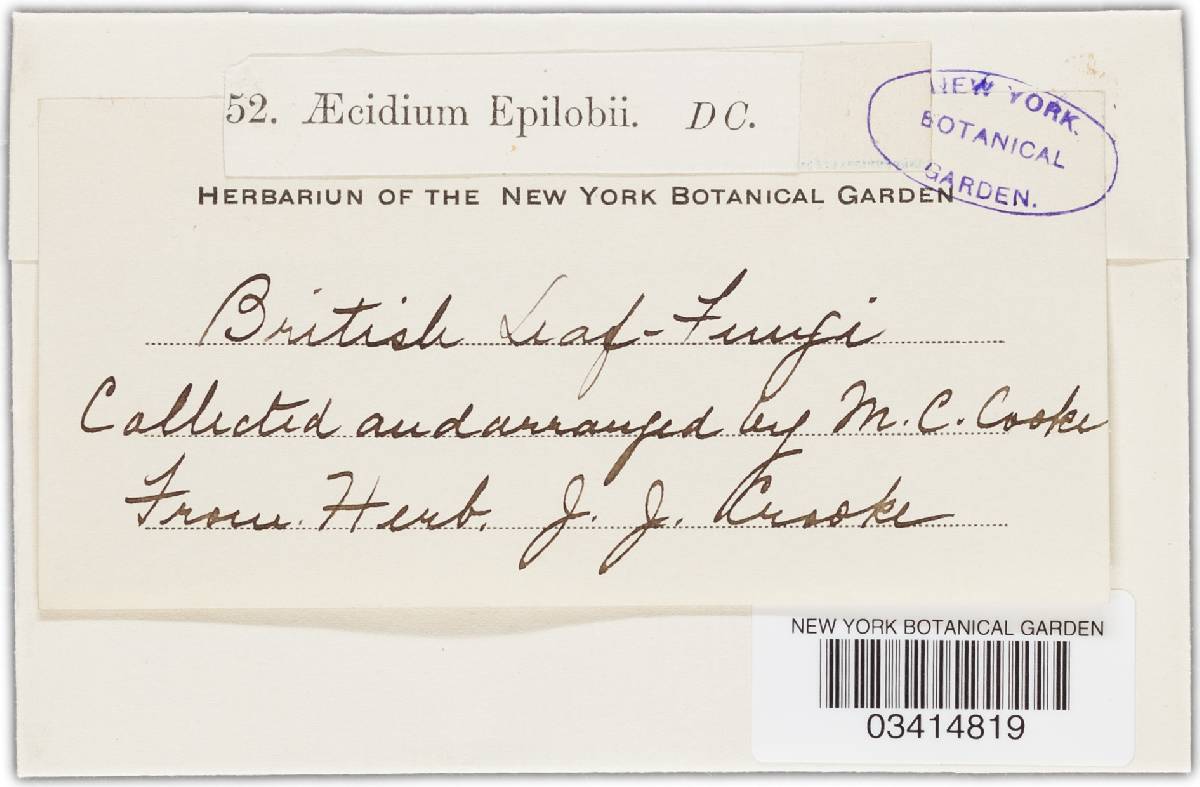 52. Æcidium Epilobii. DC.
NEW YORK.
BOTANICAL
GARDEN.
HERBARIUN OF THE NEW YORK BOTANICAL GARDEN
British Leaf-Fungi
Collected and arranged by M. C. Cooke
From Herb. J. J. Crooke
NEW YORK BOTANICAL GARDEN
03414819